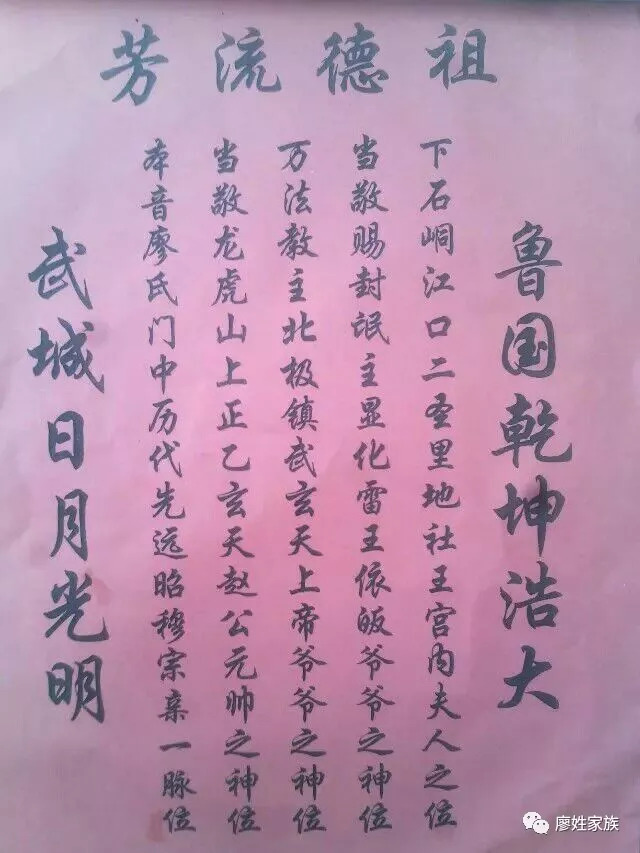 祖德流芳
鲁国乾坤浩大
下石峒江口二圣里地社王宫内夫人之位
当敬赐封氓主显化雷王依皈爷爷之神位
万法教主北极镇武玄天上帝爷爷之神位
当敬龙虎山上正乙玄天赵公元帅之神位
本音廖氏门中历代先远昭穆宗亲一脉位
武城日月光明
廖姓家族